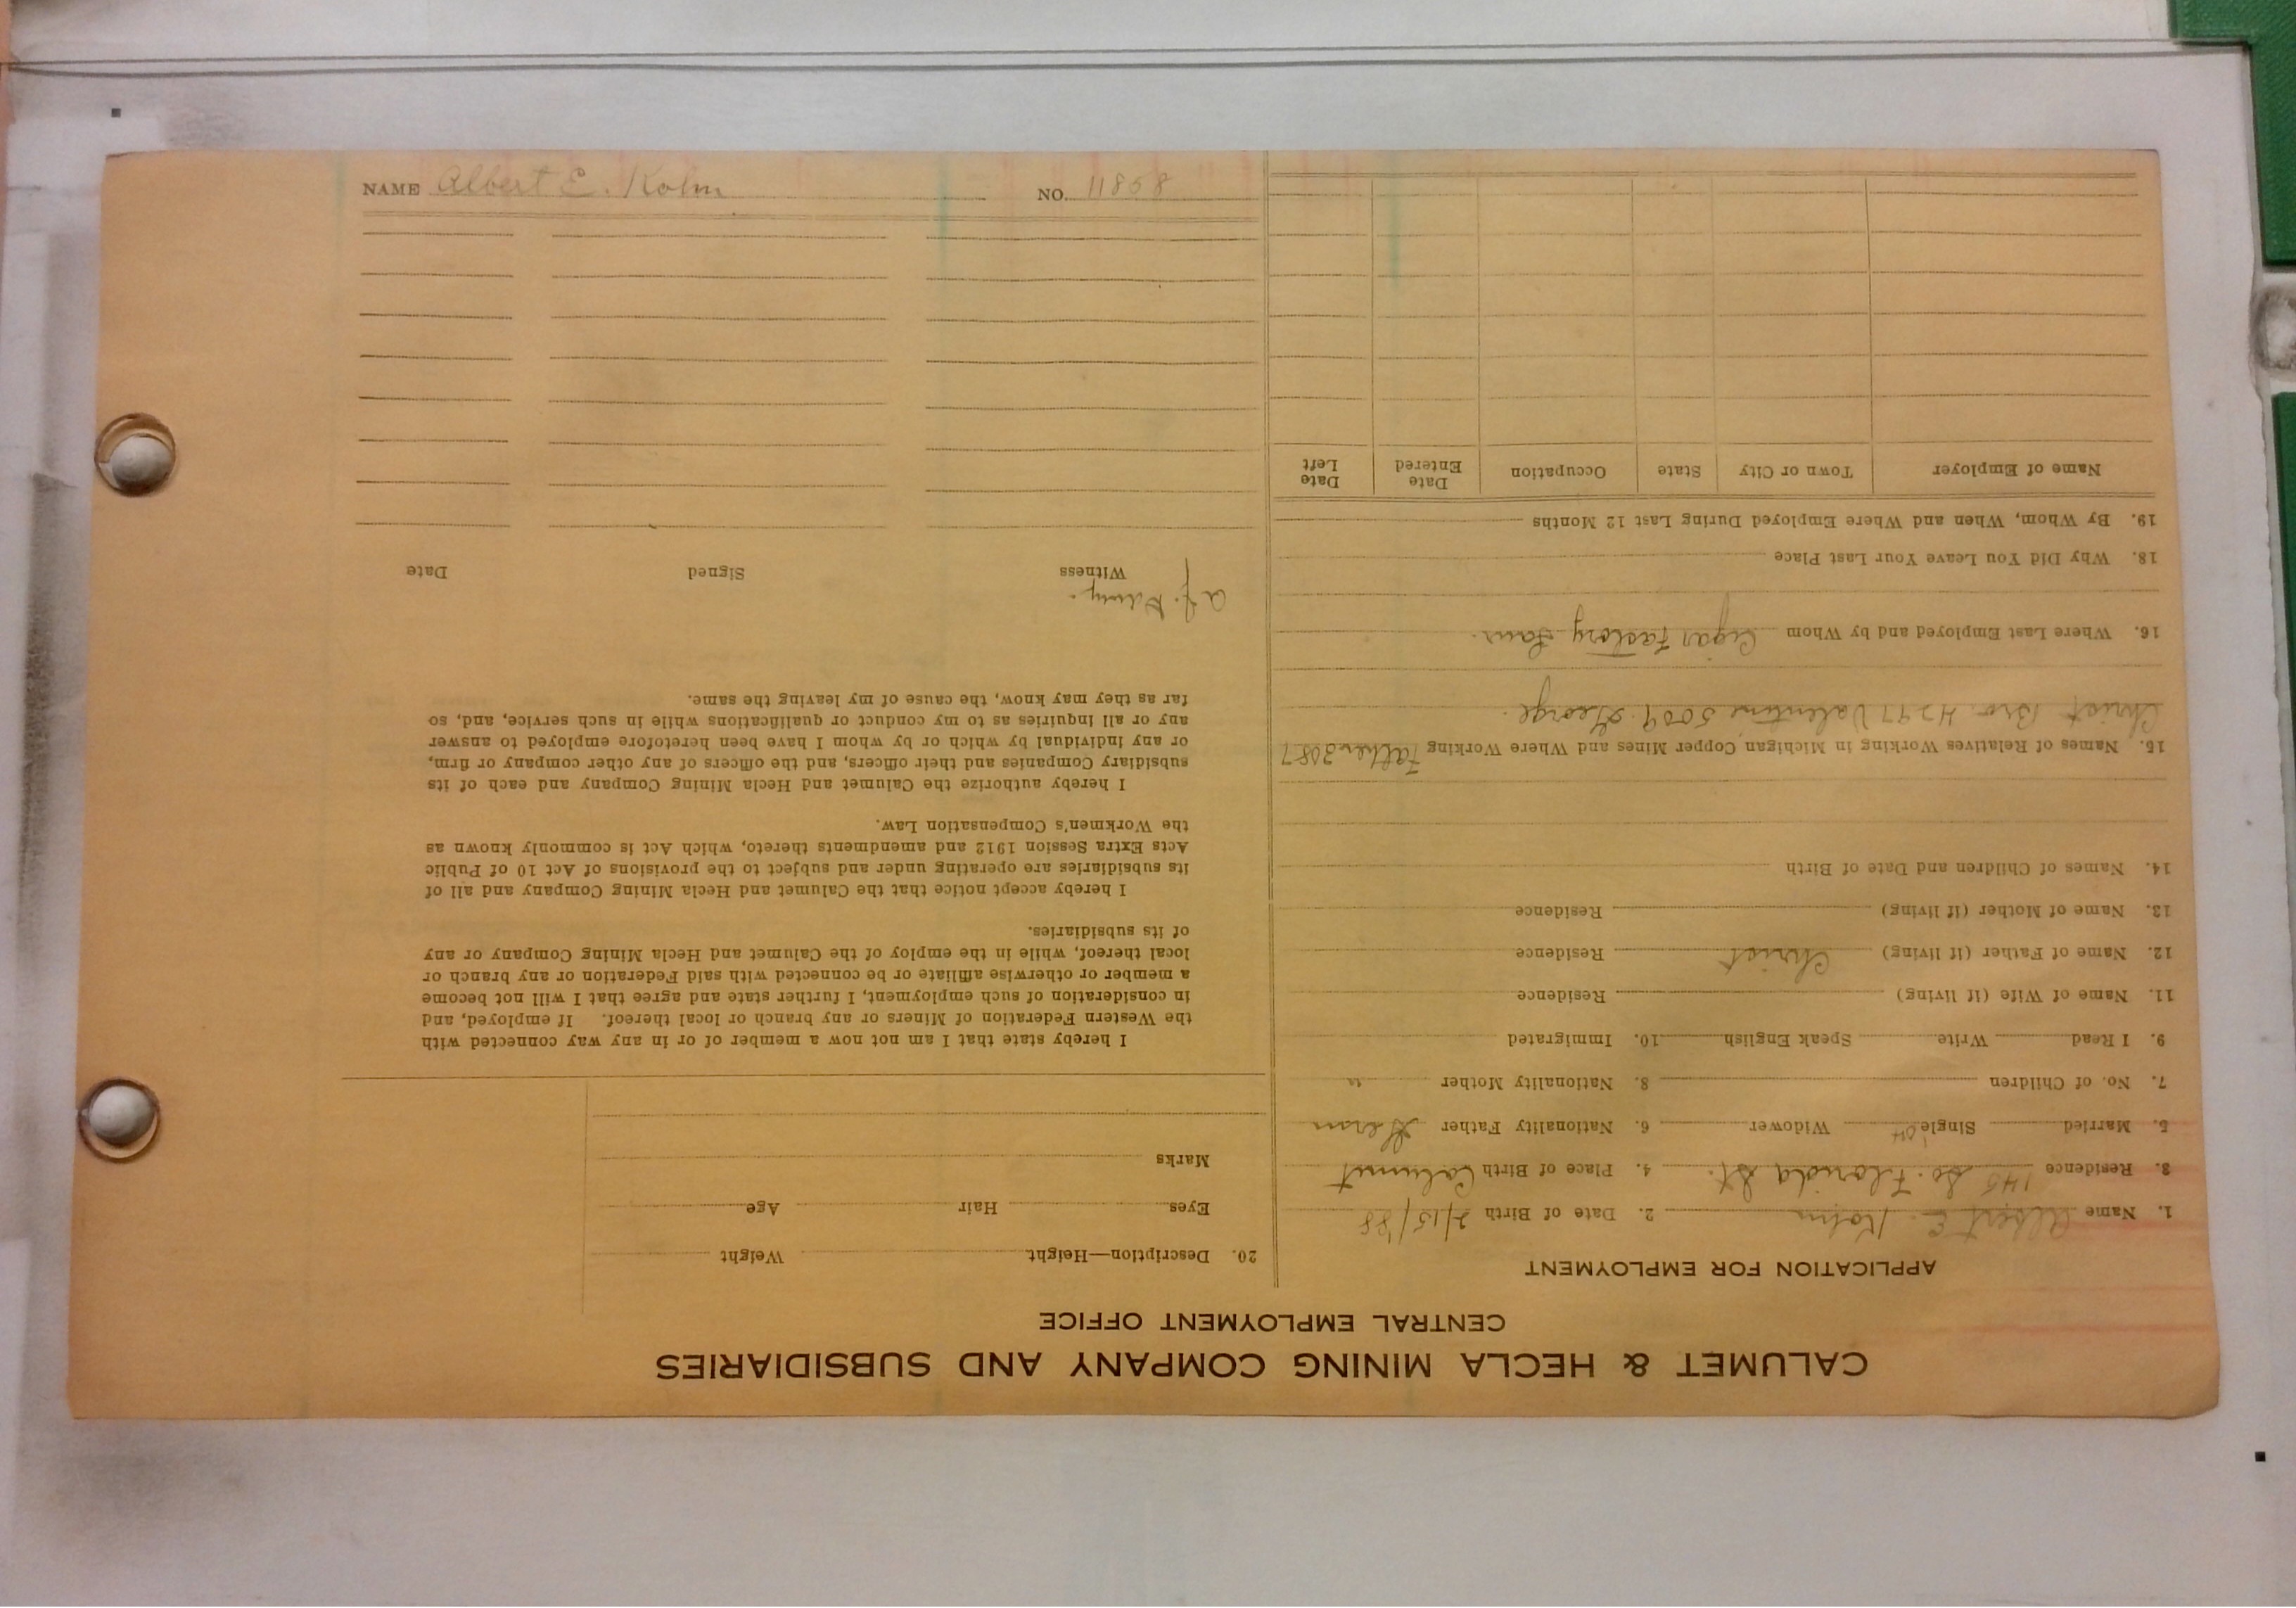 CALUMET & HECLA MINING COMPANY AND SUBSIDIARIES
CENTRAL EMPLOYMENT OFFICE
APPLICATION FOR EMPLOYMENT
1. Name Albert E. Kohn 2. Date of Birth 2/15/88
3. Residence 145 So. Florida St. 4. Place of Birth Calumet
5. Married Single Widower 6. Nationality Father Germ
7. No. of Children 8. Nationality Mother "
9. I Read Write Speak English 10. Immigrated
11. Name of Wife (if living) Residence
12. Name of Father (if living) Christ Residence
13. Name of Mother (if living) Residence
14. Names of Children and Date of Birth
15. Names of Relatives Working in Michigan Copper Mines and Where Working Father 3087
Christ Bro. 4297 Valentine 5009 George.
16. Where Last Employed and by Whom Cigar Factory
18. Why Did You Leave Your Last Place
19. By Whom, When and Where Employed During Last 12 Months
Name of Employer Town or City State Occupation Date Entered Date Left
20. Description—Height Weight
Eyes Hair Age
Marks
I hereby state that I am not now a member of or in any way connected with
the Western Federation of Miners or any branch or local thereof. If employed, and
in consideration of such employment, I further state and agree that I will not become
a member or otherwise affiliate or be connected with said Federation or any branch or
local thereof, while in the employ of the Calumet and Hecla Mining Company or any
of its subsidiaries.
I hereby accept notice that the Calumet and Hecla Mining Company and all of
its subsidiaries are operating under and subject to the provisions of Act 10 of Public
Acts Extra Session 1912 and amendments thereto, which Act is commonly known as
the Workmen's Compensation Law.
I hereby authorize the Calumet and Hecla Mining Company and each of its
subsidiary Companies and their officers, and the officers of any other company or firm,
or any individual by which or by whom I have been heretofore employed to answer
any or all inquiries as to my conduct or qualifications while in such service, and, so
far as they may know, the cause of my leaving the same.
Witness Signed Date
NAME Albert E. Kohn NO. 11858